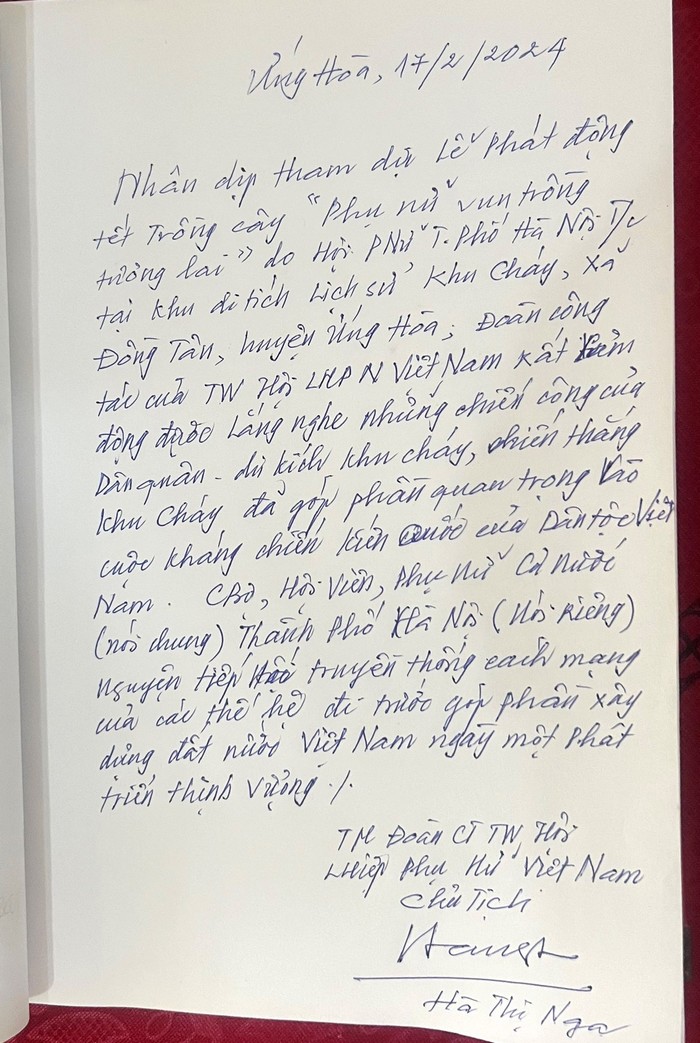 Ứng Hòa, 17/2/2024
Nhân dịp tham dự Lễ phát động
tết Trồng cây "Phụ nữ vun trồng
tương lai" do Hội PNữ T.Phố Hà Nội T/c
tại khu di tích Lịch sử Khu Cháy, xã
Đồng Tân, huyện Ứng Hòa; Đoàn công
tác của TW Hội LHPN Việt Nam rất cảm
động được Lắng nghe những chiến công của
Dân quân - du kích khu cháy, chiến thắng
khu Cháy đã góp phần quan trọng vào
cuộc kháng chiến kiến quốc của Dân tộc Việt
Nam. CBộ, Hội Viên, Phụ Nữ Cả nước
(nói chung) Thành Phố Hà Nội (Nói Riêng)
Nguyện tiếp truyền thống cách mạng
của các thế hệ đi trước góp phần xây
dựng đất nước Việt Nam ngày một phát
triển thịnh vượng ./.
TM Đoàn CT TW Hội
LHiệp Phụ Nữ Việt Nam
Chủ Tịch
Hà Thị Nga